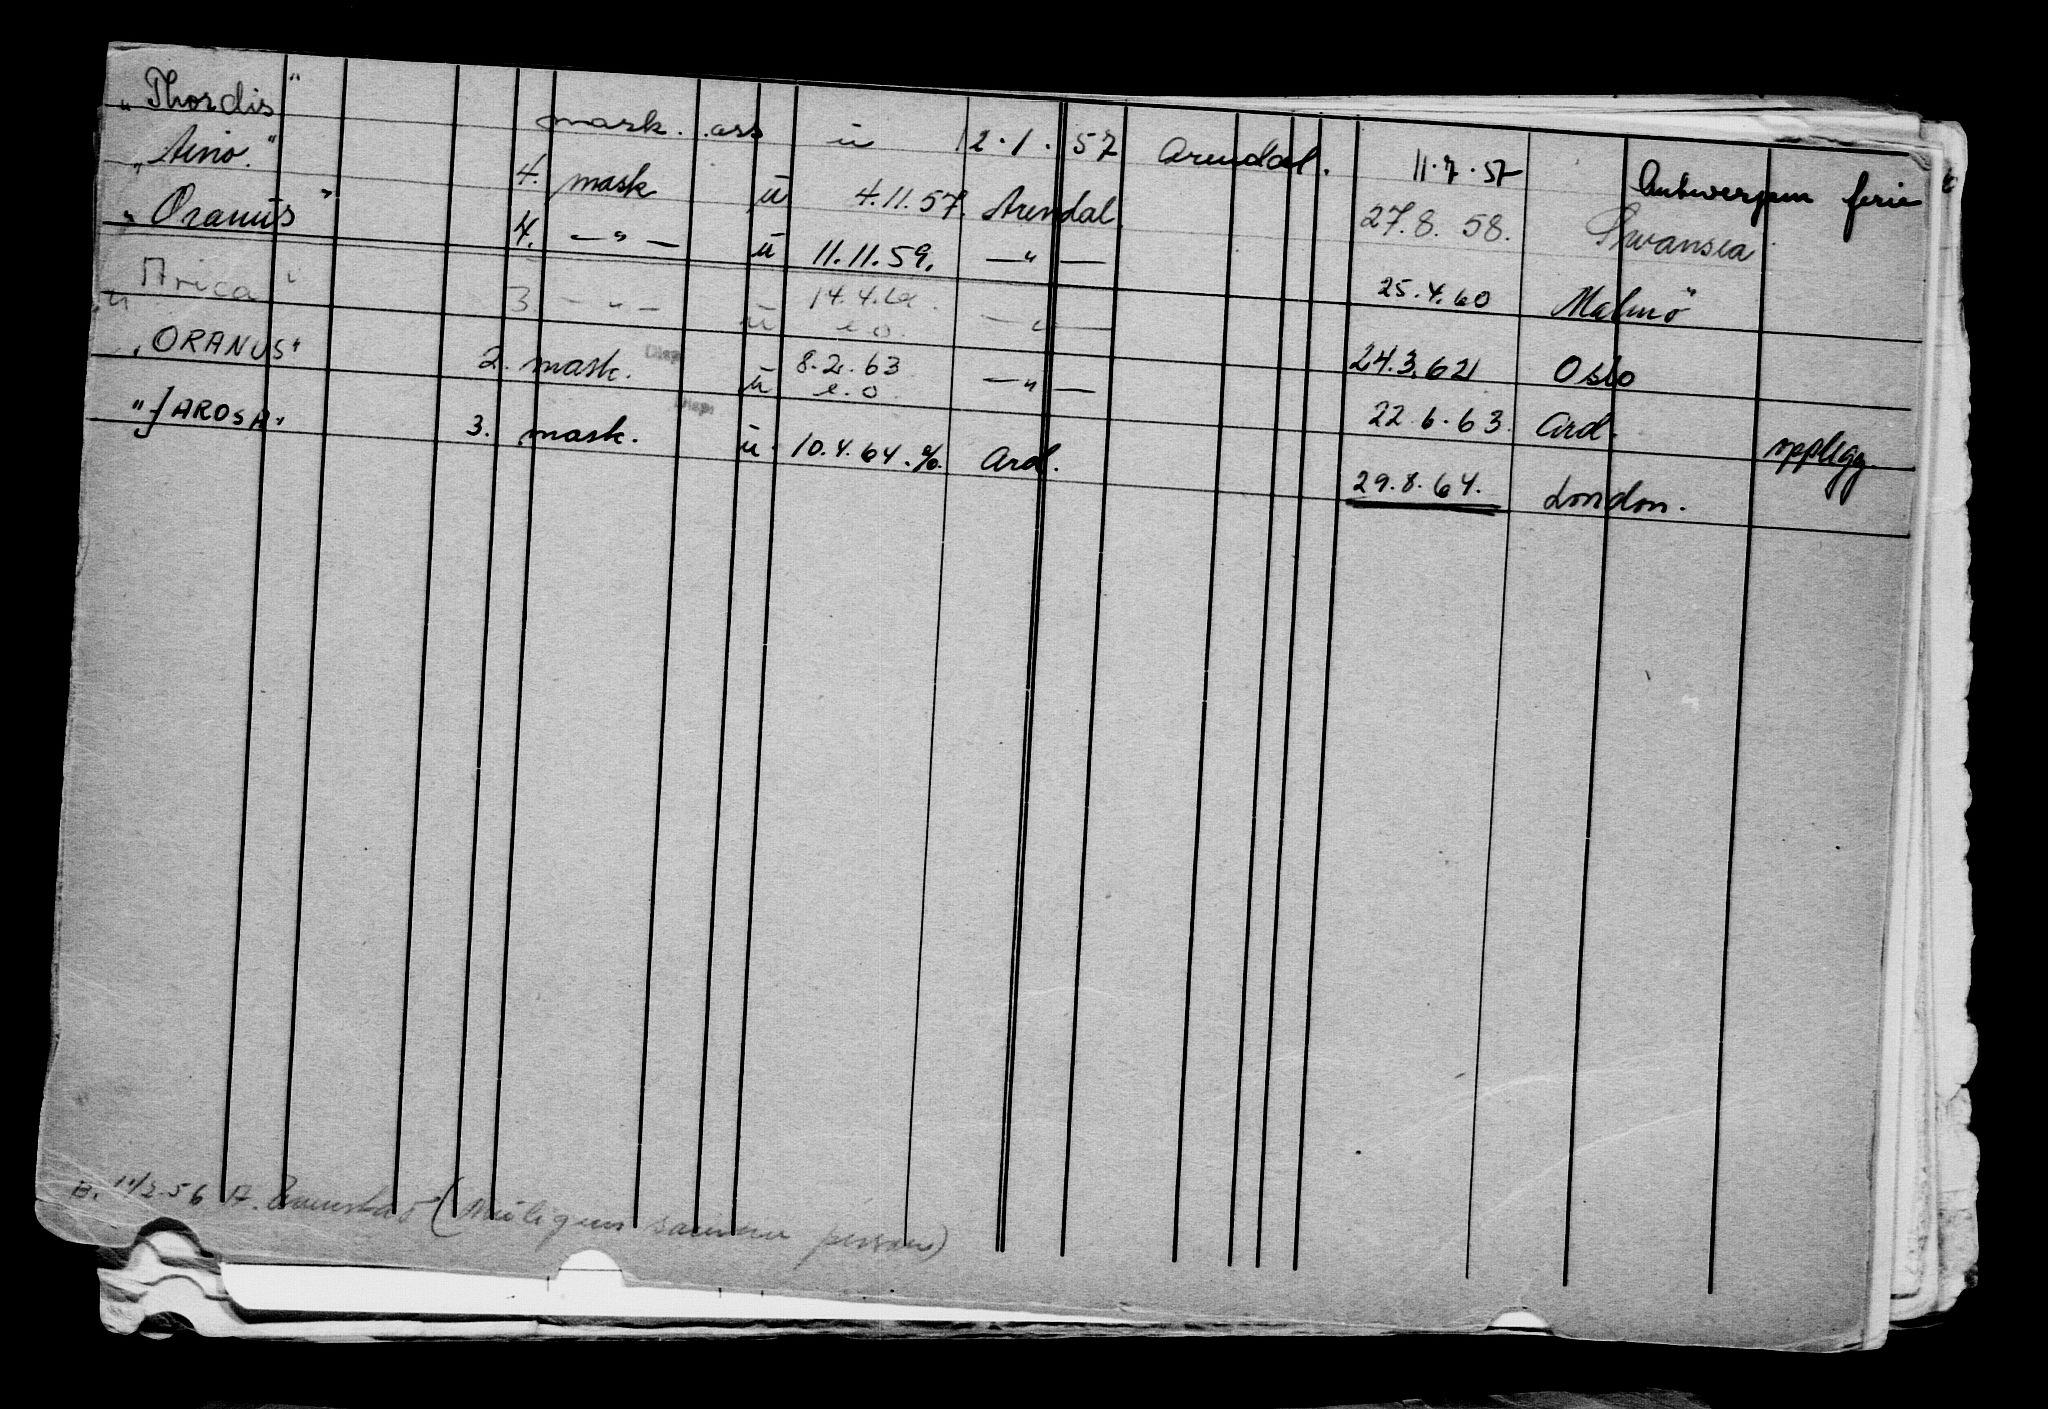 „Thordis" mask. ass u 12.1.57 Arendal. 11.7.57 Antwerpen ferie
„Aino." 4. mask u 4.11.57. Arendal. 27.8.58. Swansea
„Oranus" 4. —"— u 11.11.59. —"— 25.4.60 Malmø
„Arica" 3. —"— u 14.4. e.o. —"— 24.3.62 Oslo
„ORANUS" 2. mask. u 8.2.63 e.o. —"— 22.6.63. Ard. opplegg.
"JAROSA" 3. mask. u. 10.4.64. Ard. 29.8.64. London.
B. 11/2.56 A. (Muligens samme person)